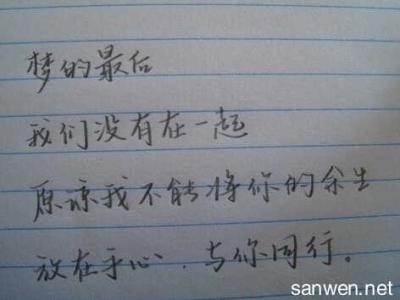 梦的最后
我们没有在一起
原谅我不能将你的余生
放在手心、与你同行。
sanwen.net